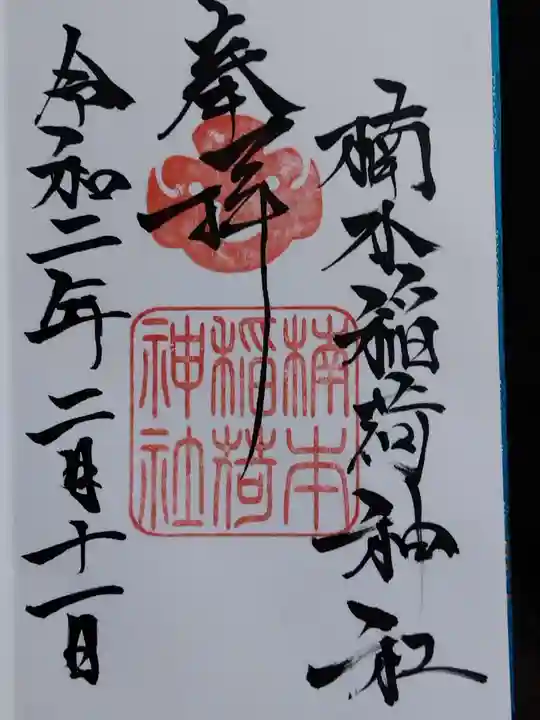 楠本稲荷神社
奉拝
楠本
稲荷
神社
令和二年二月十一日